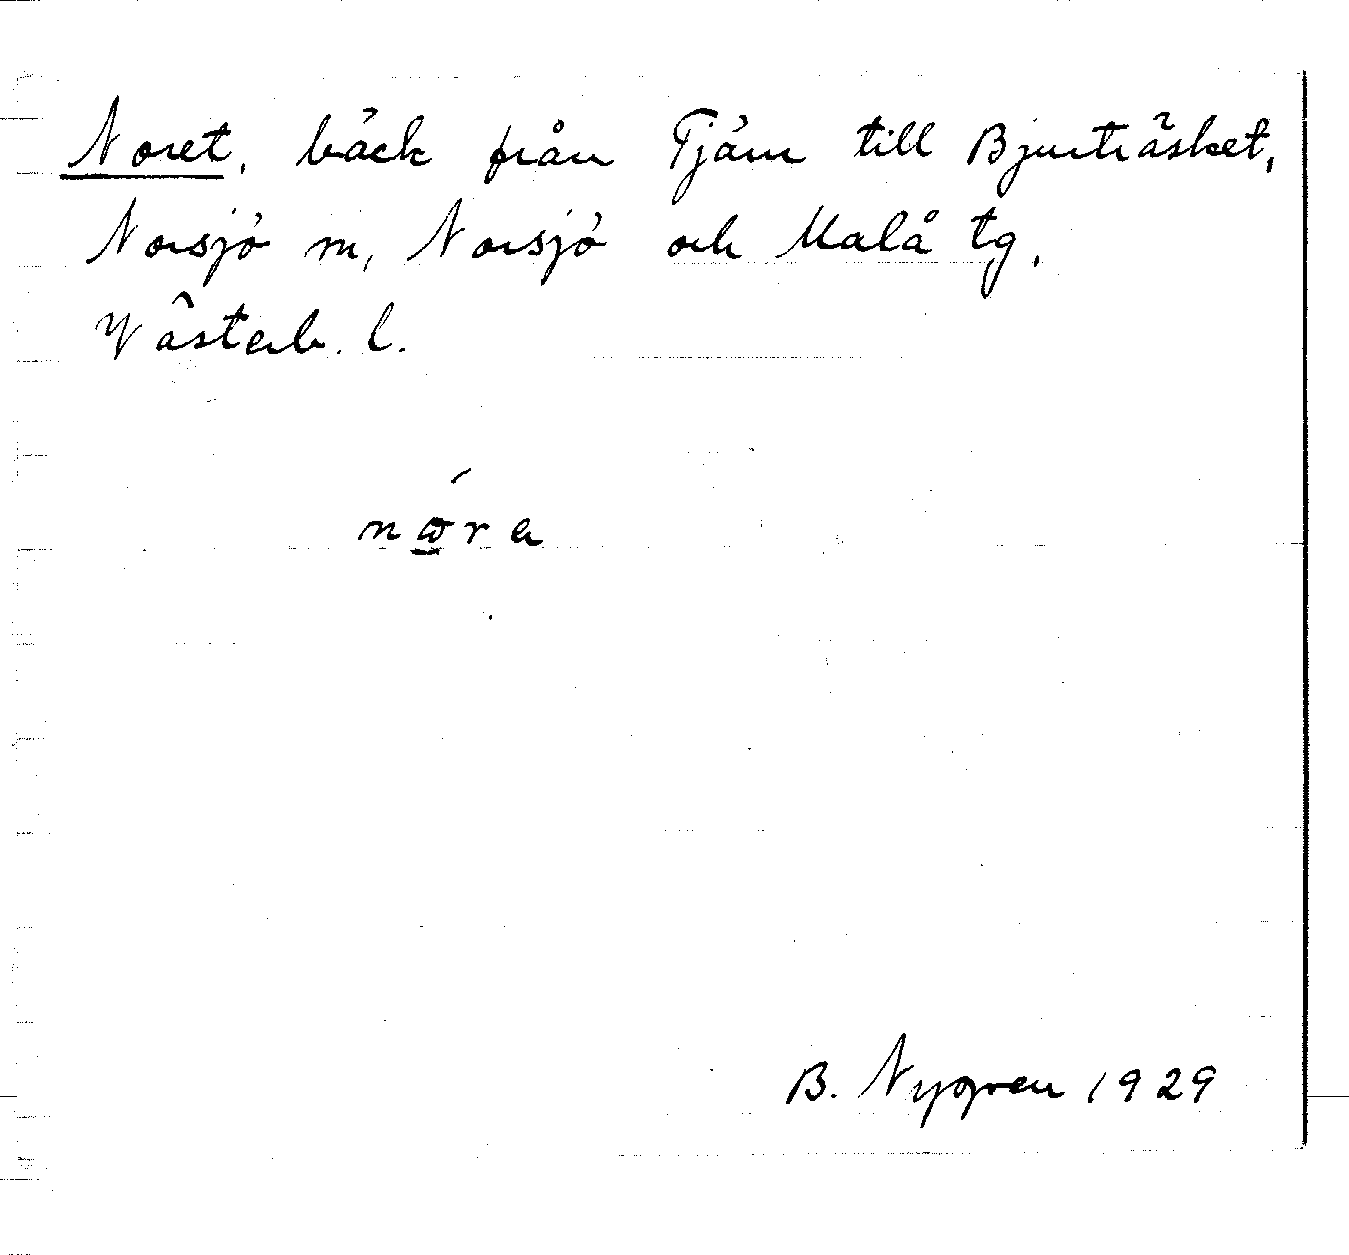 Noret, bäck från Tjäm till Bjurträsket,
Norsjö m, Norsjö och Malå tg.
Västerb. l.
B. Nygren 1929